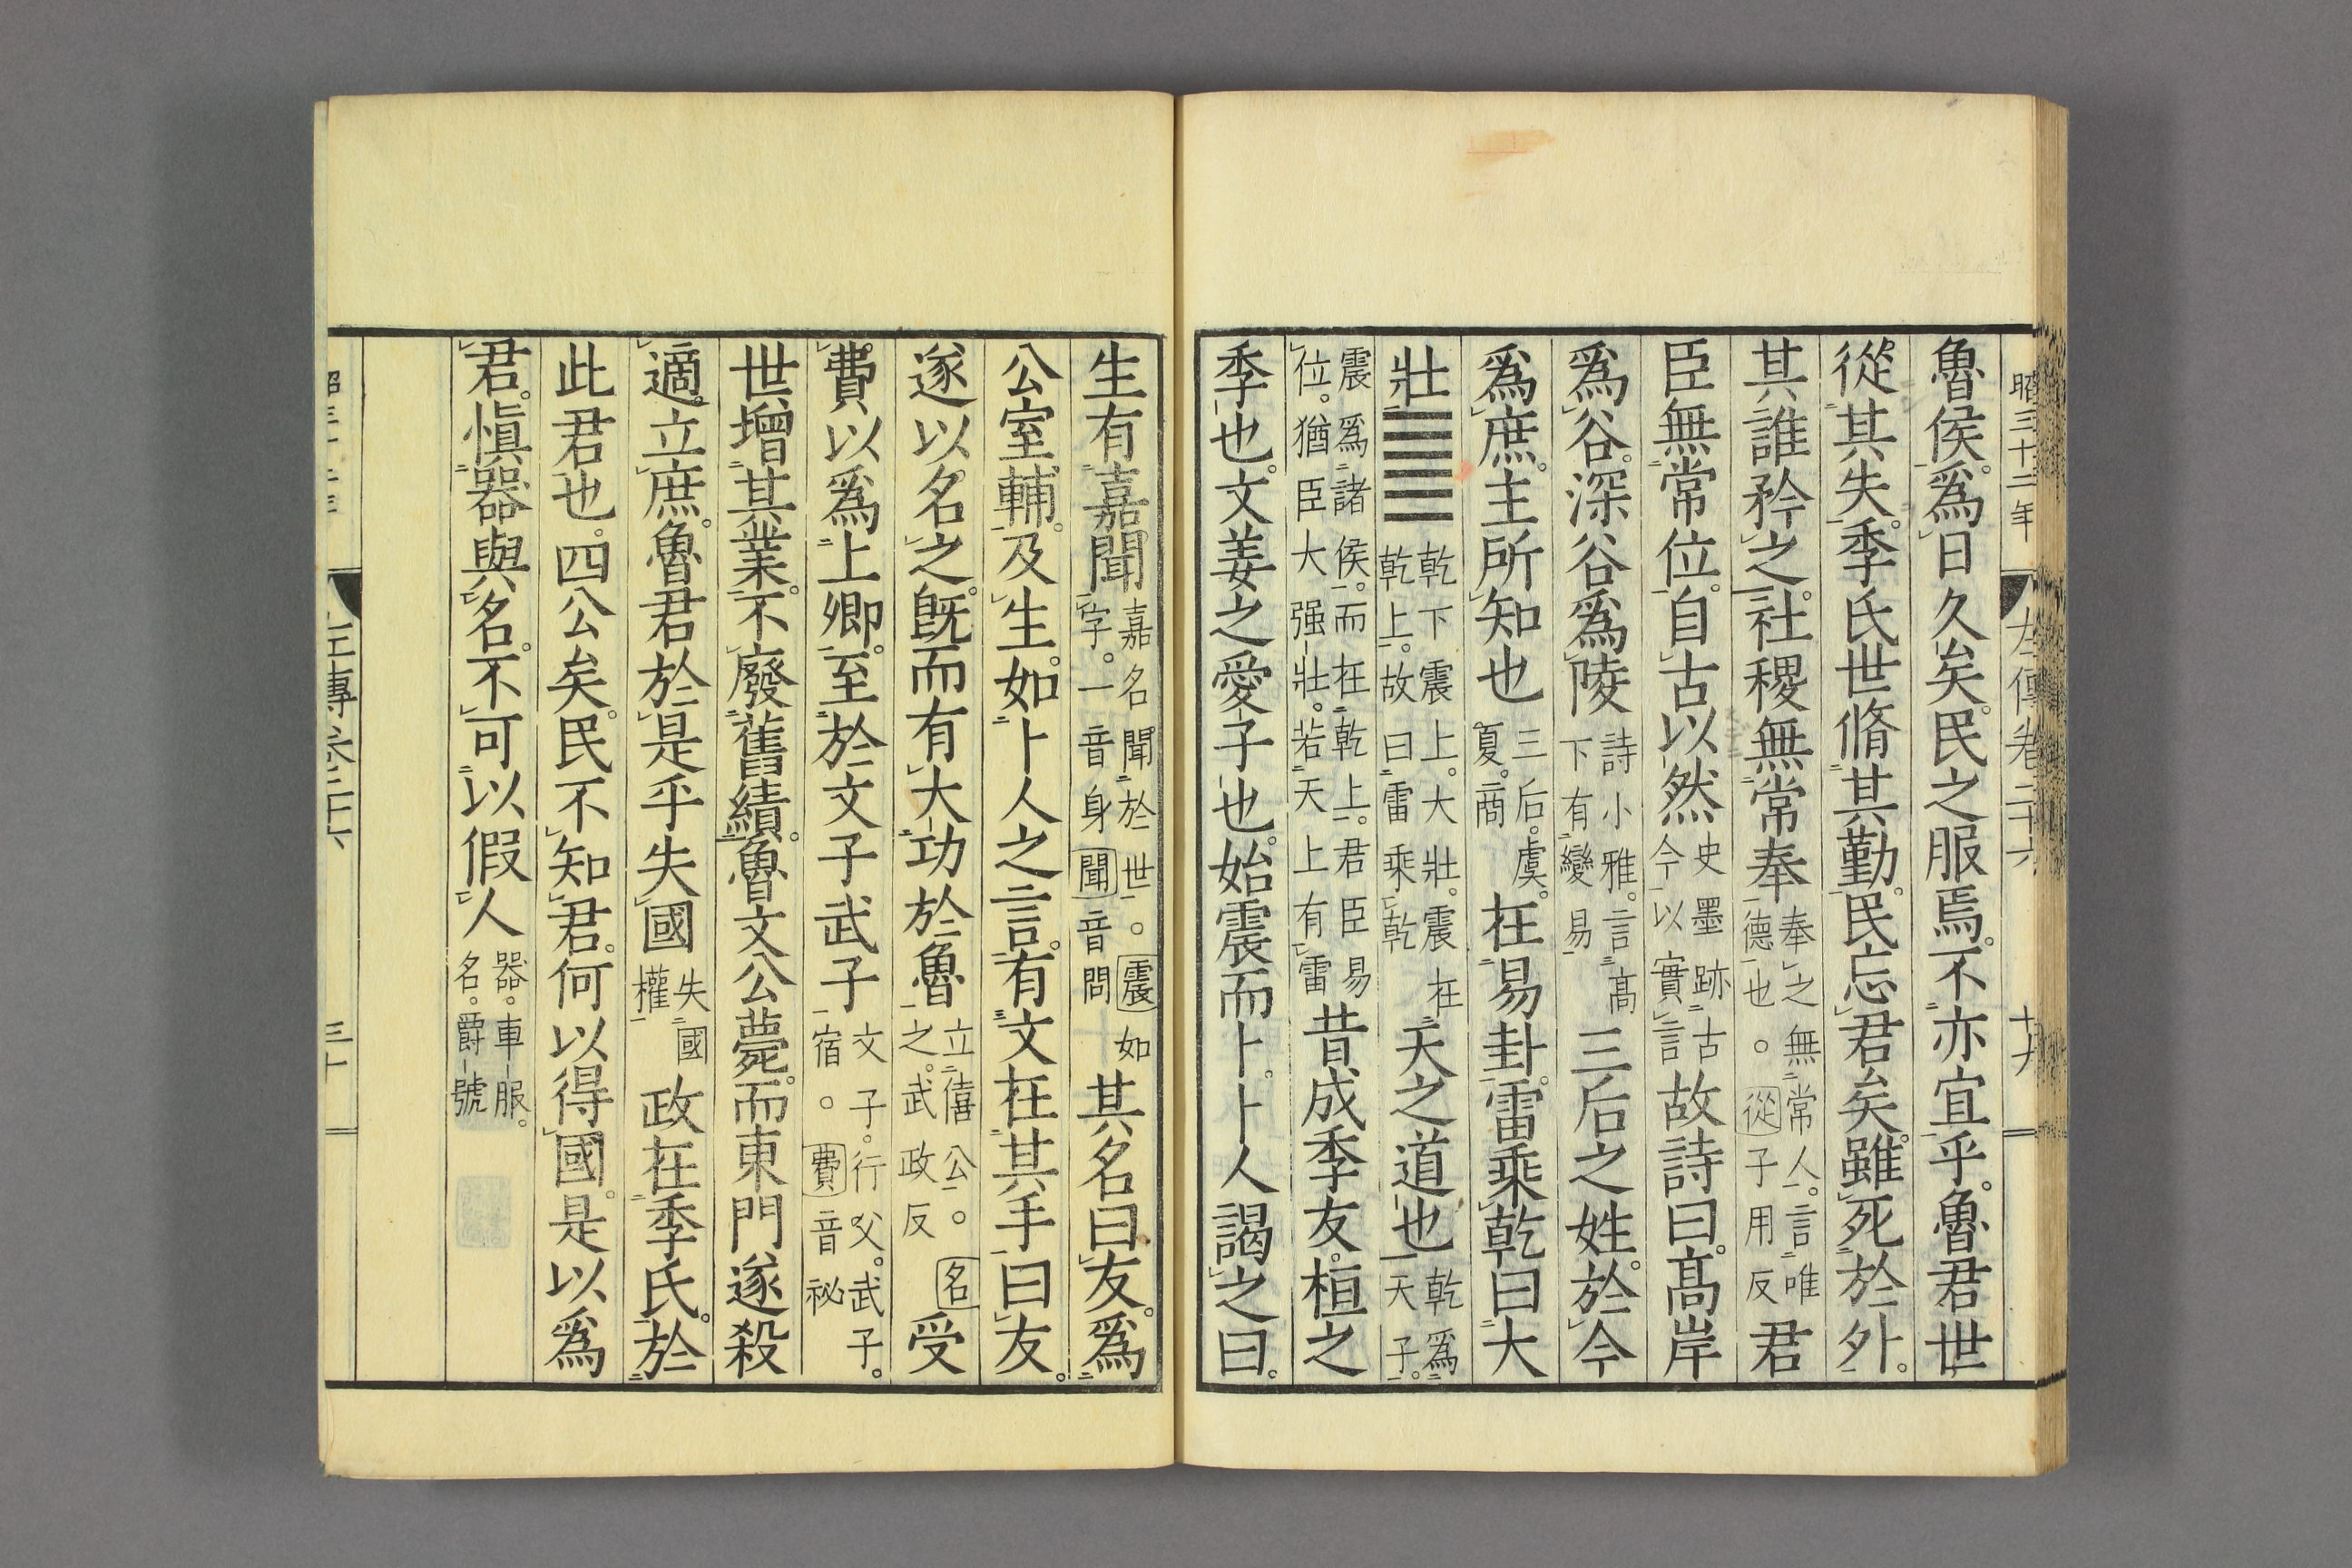 昭三十二年 左傳卷二十六 十九
魯侯。爲日久矣。民之服焉。不亦宜乎。魯君世
從其失。季氏世脩其勤。民忘君矣。雖死於外。
其誰矜之。社稷無常奉奉之無常人。言唯德也。從子用反君
臣無常位。自古以然史墨跡古今以實言故詩曰。高岸
爲谷。深谷爲陵詩小雅。言高下有變易三后之姓。於今
爲庶。主所知也三后。虞夏。商在易卦。雷乘乾曰大
壯䷡乾下震上。大壯。震在乾上。故曰雷乘乾天之道也乾爲天子。
震爲諸侯。而在乾上。君臣易位。猶臣大强壯。若天上有雷昔成季友。桓之
季也。文姜之愛子也。始震而卜。卜人謁之曰。
生有嘉聞嘉名聞於世。震如字。一音身聞音問其名曰友。爲
公室輔。及生。如卜人之言。有文在其手曰友。
遂以名之。既而有大功於魯立僖公。名之。武政反受
費以爲上卿。至於文子武子文子。行父。武子。宿。費音祕
世增其業。不廢舊績。魯文公薨。而東門遂殺
適。立庶。魯君於是乎失國失國權政在季氏。於
此君也。四公矣。民不知君。何以得國。是以爲
君。愼器與名。不可以假人器。車服。名。爵號
左傳卷二十六